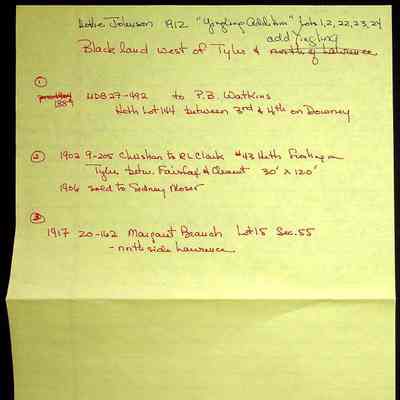 Johnson 1912 "Yingling Addition" Lots 1, 2, 22, 23, 24
add Yingling
Black land west of Tyler & north of Lawrence
①
1889 UDB 27-492 to P.B. Watkins
Heth Lot 144 between 3rd & 4th on Downey
② 1902 9-205 to R L Clark #43 Heth Fronting on
Tyler betw. Fairfax & 30' x 120'
1906 sold to Sydney Moser
③
1917 20-162 Margaret Branch Lot 15 Sec. 55
- north side Lawrence